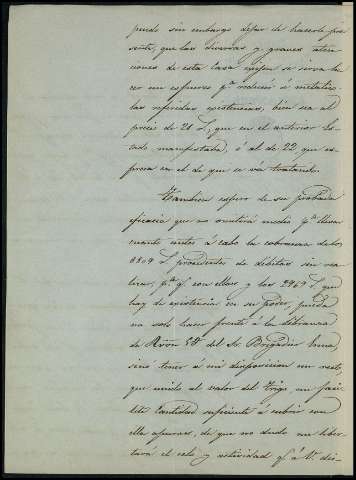 puedo sin embargo dejar de hacerle pre
sente, que las diversas y graves aten
ciones de esta casa exijen se sirva ha
cer un esfuerzo pª reducir á metalico
las referidas existencias, bien sea al
precio de 21 que en el anterior
manifestaba, ó al de 22 que es
presa en el de que se vá tratando.
Tambien espero de su probada
eficacia que no omitirá medio pª llevar
cuanto antes á cabo la cobranza de los
8809 procedentes de debitos sin rea
lizar, pª q. con ellos y los 2969 que
hay de existencia en su poder, pueda
no solo hacer frente á la libranza
de Rvon del Sr Brigadier
sino tener á mi disposicion un resto,
que unido al valor del trigo me faci
lite cantidad suficiente á cubrir con
ella apuros, de que no dudo me liber
tará el celo y actividad q. á V. dis-